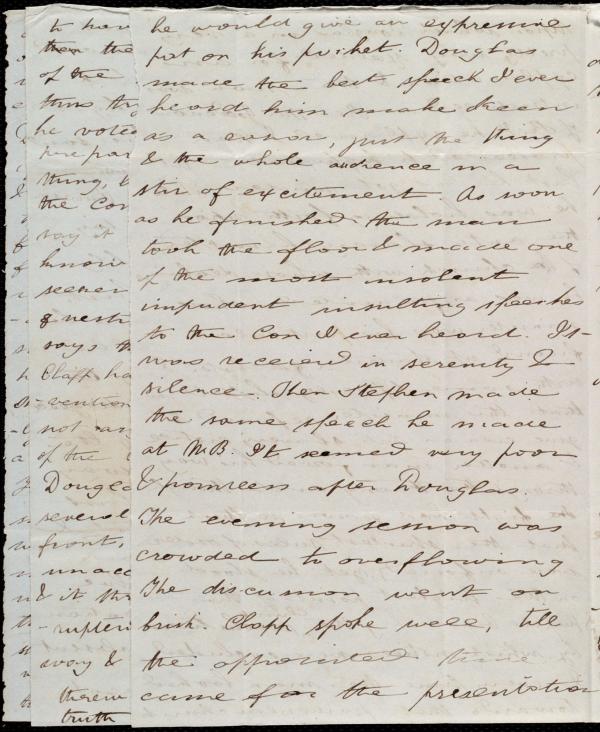 he would give an expressive
pat on his pocket. Douglas
made the best speech I ever
heard him make keen
as a razor, just the thing
& the whole audience in a
stir of excitement. As soon
as he finished the man
took the floor & made one
of the most insolent
impudent insulting speeches
to the Con I ever heard. It
was received in serenity &
silence. Then Stephen made
the same speech he made
at M.B. It seemed very poor
& powerless after Douglas.
The evening session was
crowded to overflowing
The discussion went on
brisk. Clapp spoke well, till
the appointed time
came for the presentation
to hav
then the
of the
thus th
he voted
prepar
thing, &
the Con
say it
know
seener
& nest
says th
Clapp ha
vention
not any
of the
Dougla
several
front,
unacc
& it th
rupteri
way &
therew
truth